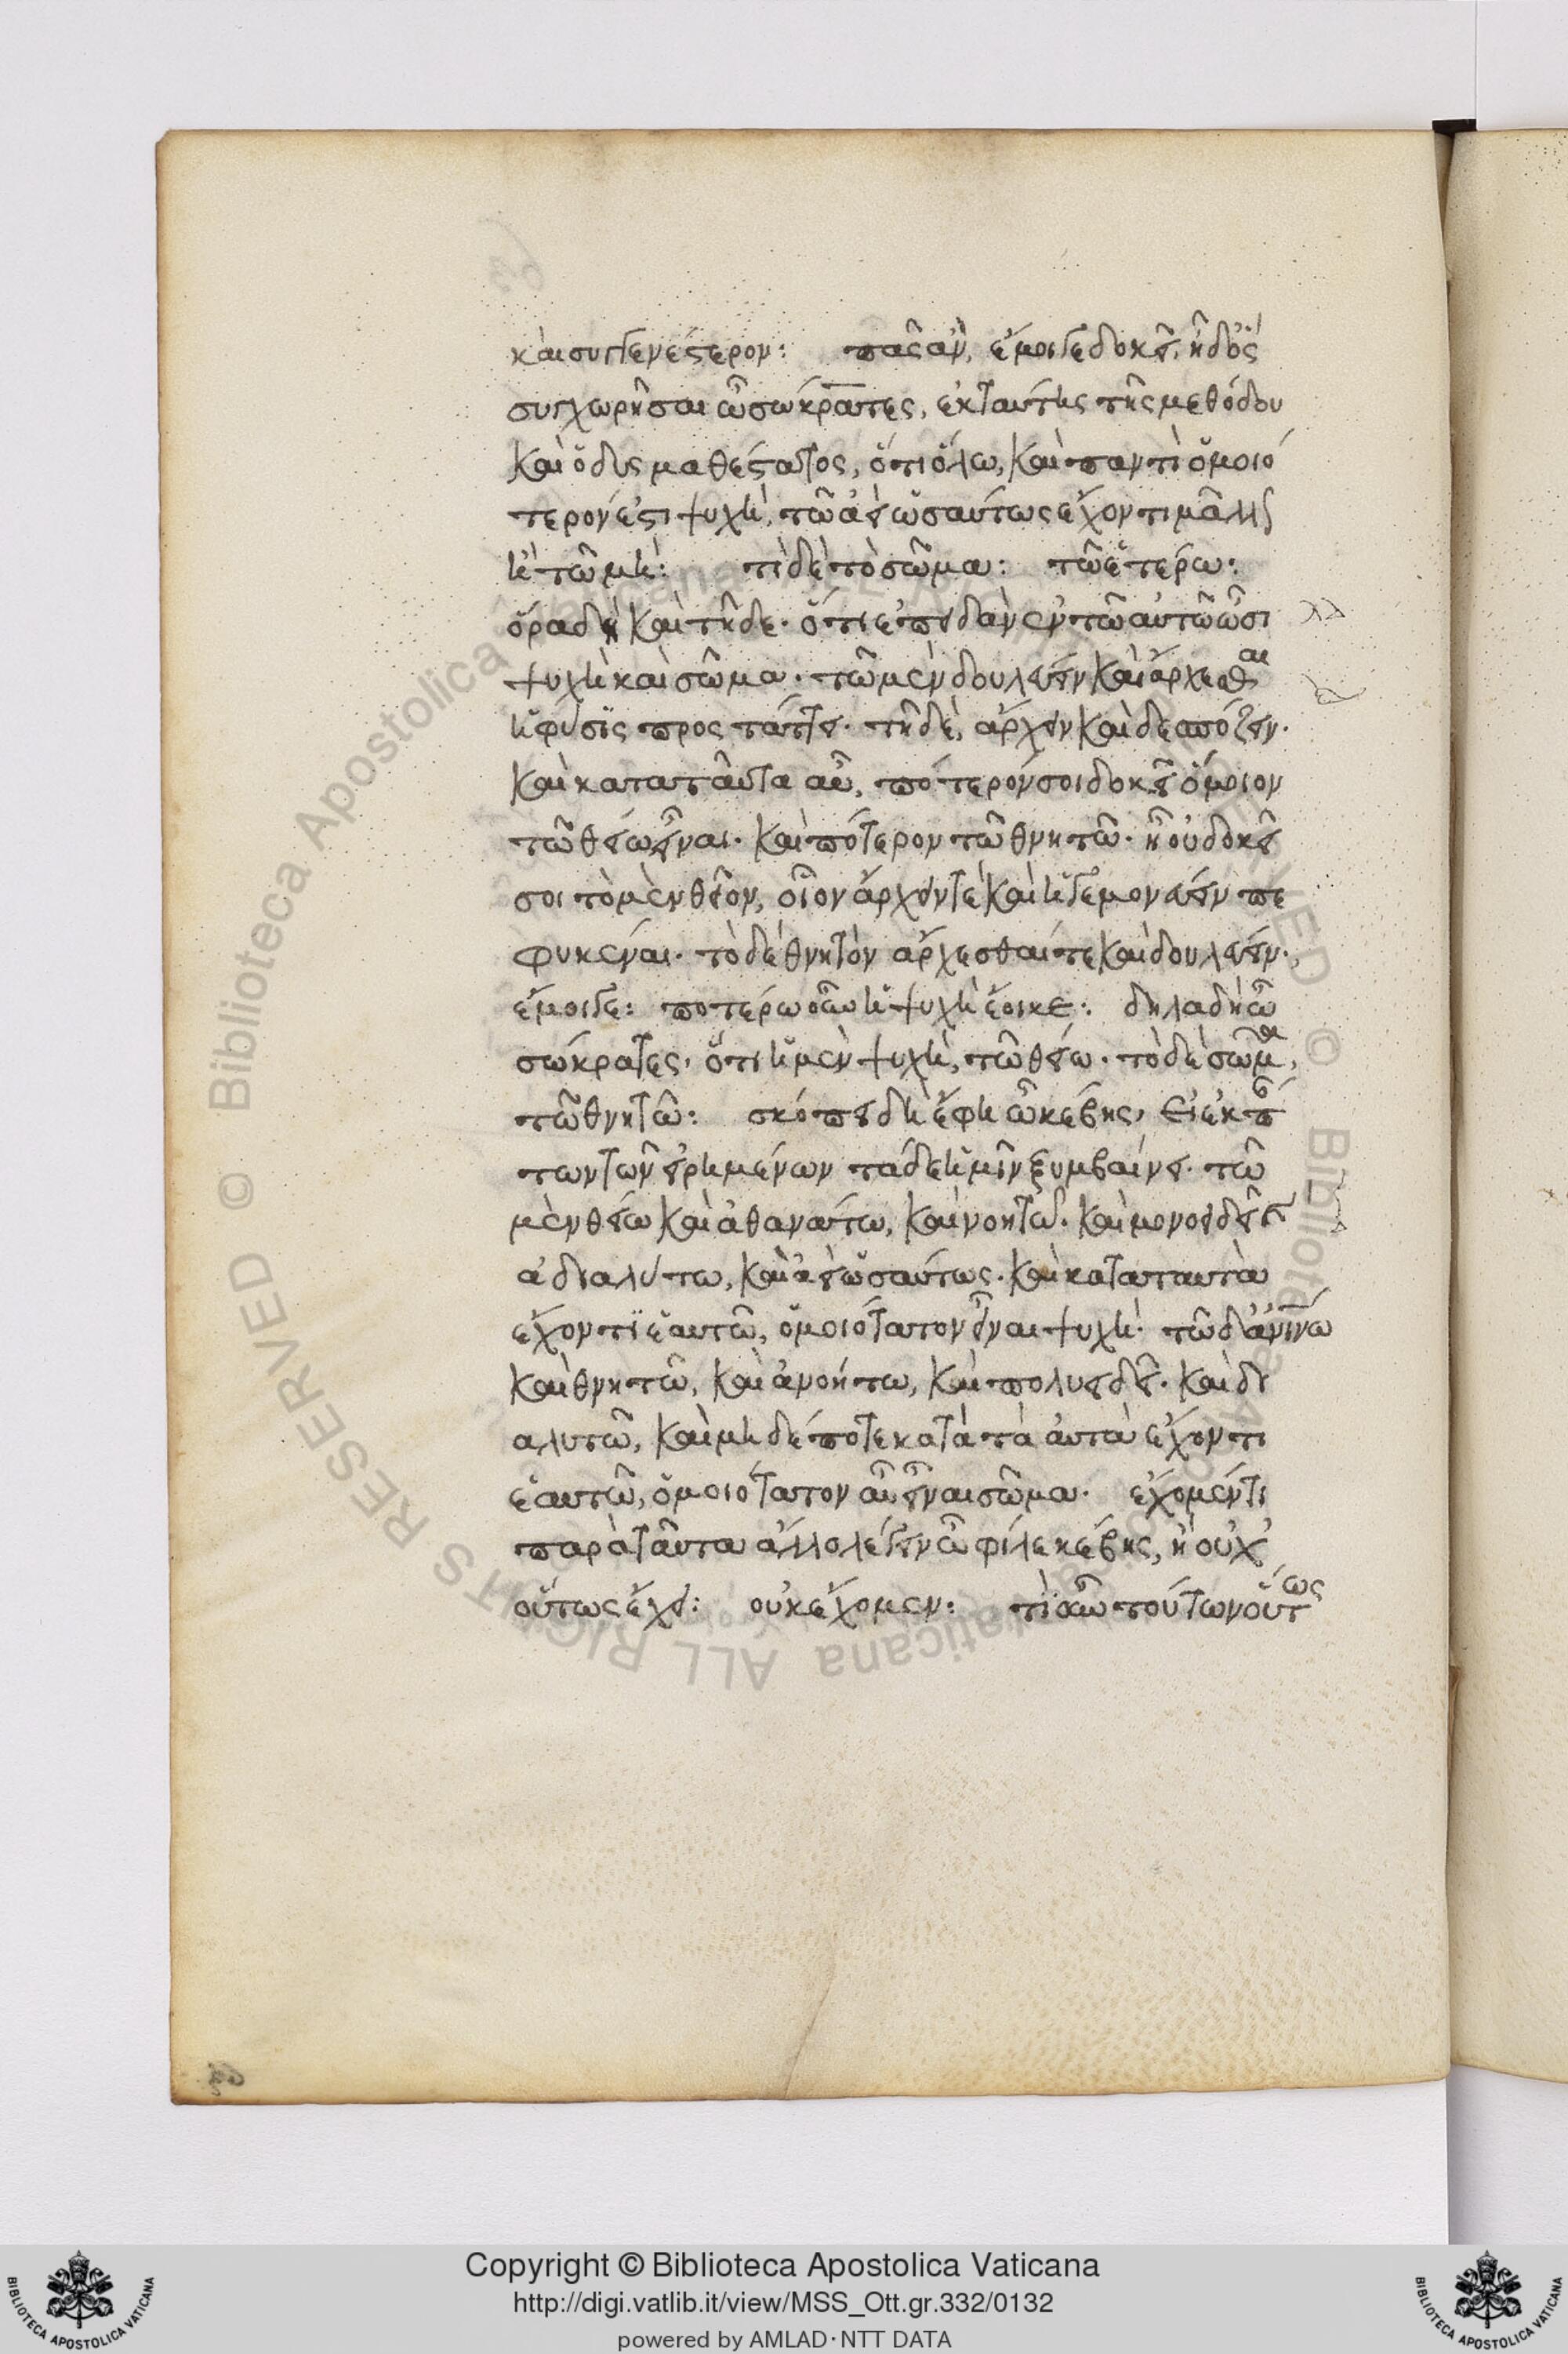 καὶ συγγενέστερον: πᾶς ἂν, ἔμοιγε δοκεῖ, ἦδ᾽ ὃς
συγχωρῆσαι ὦ σώκρατες, ἐκ ταύτης τῆς μεθόδου
καὶ ὁ δυσμαθέστατος, ὅτι ὅλω, καὶ παντὶ ὁμοιό
τερόν ἐστι ψυχὴ, τῶ ἀεὶ ὡσαύτως ἔχοντι μᾶλλ
ἢ τῶ μή: τί δὲ τὸ σῶμα: τῶ ἑτέρω:
ὅρα δὴ καὶ τῆδε. ὅτι ἐπειδὰν ἐν τῶ αὐτῶ ὦσι
ψυχὴ καὶ σῶμα. τῶ μὲν δουλεύειν καὶ ἄρχεσθαι
ἡ φύσις προστάττει. τῆ δὲ, ἄρχειν καὶ δεσπόζειν.
καὶ κατὰ ταῦτα αὖ, πότερόν σοι δοκεῖ ὅμοιον
τῶ θείω εἶναι. καὶ πότερον τῶ θνητῶ. ἢ οὐ δοκεῖ
σοι τὸ μὲν θεῖον, οἷον ἄρχειν τὲ καὶ ἡγεμονεύειν πε
φυκέναι. τὸ δὲ θνητὸν ἄρχεσθαί τε καὶ δουλεύειν.
ἔμοιγε: ποτέρω οὖν ἡ ψυχὴ ἔοικε: δῆλα δὴ ὦ
σώκρατες, ὅτι ἡ μὲν ψυχὴ, τῶ θείω. τὸ δὲ σῶμα,
τῶ θνητῶ: σκόπει δὴ ἔφη ὦ κέβης, εἰ ἐκ π
των τῶν εἰρημένων τάδε ἡμῖν ξυμβαίνει. τῶ
μὲν θείω καὶ ἀθανάτω, καὶ νοητῶ. καὶ μονοειδεῖ καὶ
ἀδιαλύτω, καὶ ἀεὶ ὡσαύτως. καὶ κατὰ ταυτὰ
ἔχοντι ἑαυτῶ, ὁμοιότατον εἶναι ψυχή. τῶ δ᾽ ἀνίνω
καὶ θνητῶ, καὶ ἀνοήτω, καὶ πολυειδεῖ. καὶ δι
αλυτῶ, καὶ μηδέποτε κατὰ τὰ αὐτὰ ἔχοντι
ἑαυτῶ, ὁμοιότατον αὖ εἶναι σῶμα. ἔχομέν τι
παρὰ ταῦτα ἄλλο λέγειν ὦ φίλε κέβης, ἢ οὐχ᾽
οὕτως ἔχει: οὐκ ἔχομεν: τί οὖν τούτων οὕτως
Copyright © Biblioteca Apostolica Vaticana
http://digi.vatlib.it/view/MSS_Ott.gr.332/0132
powered by AMLAD·NTT DATA